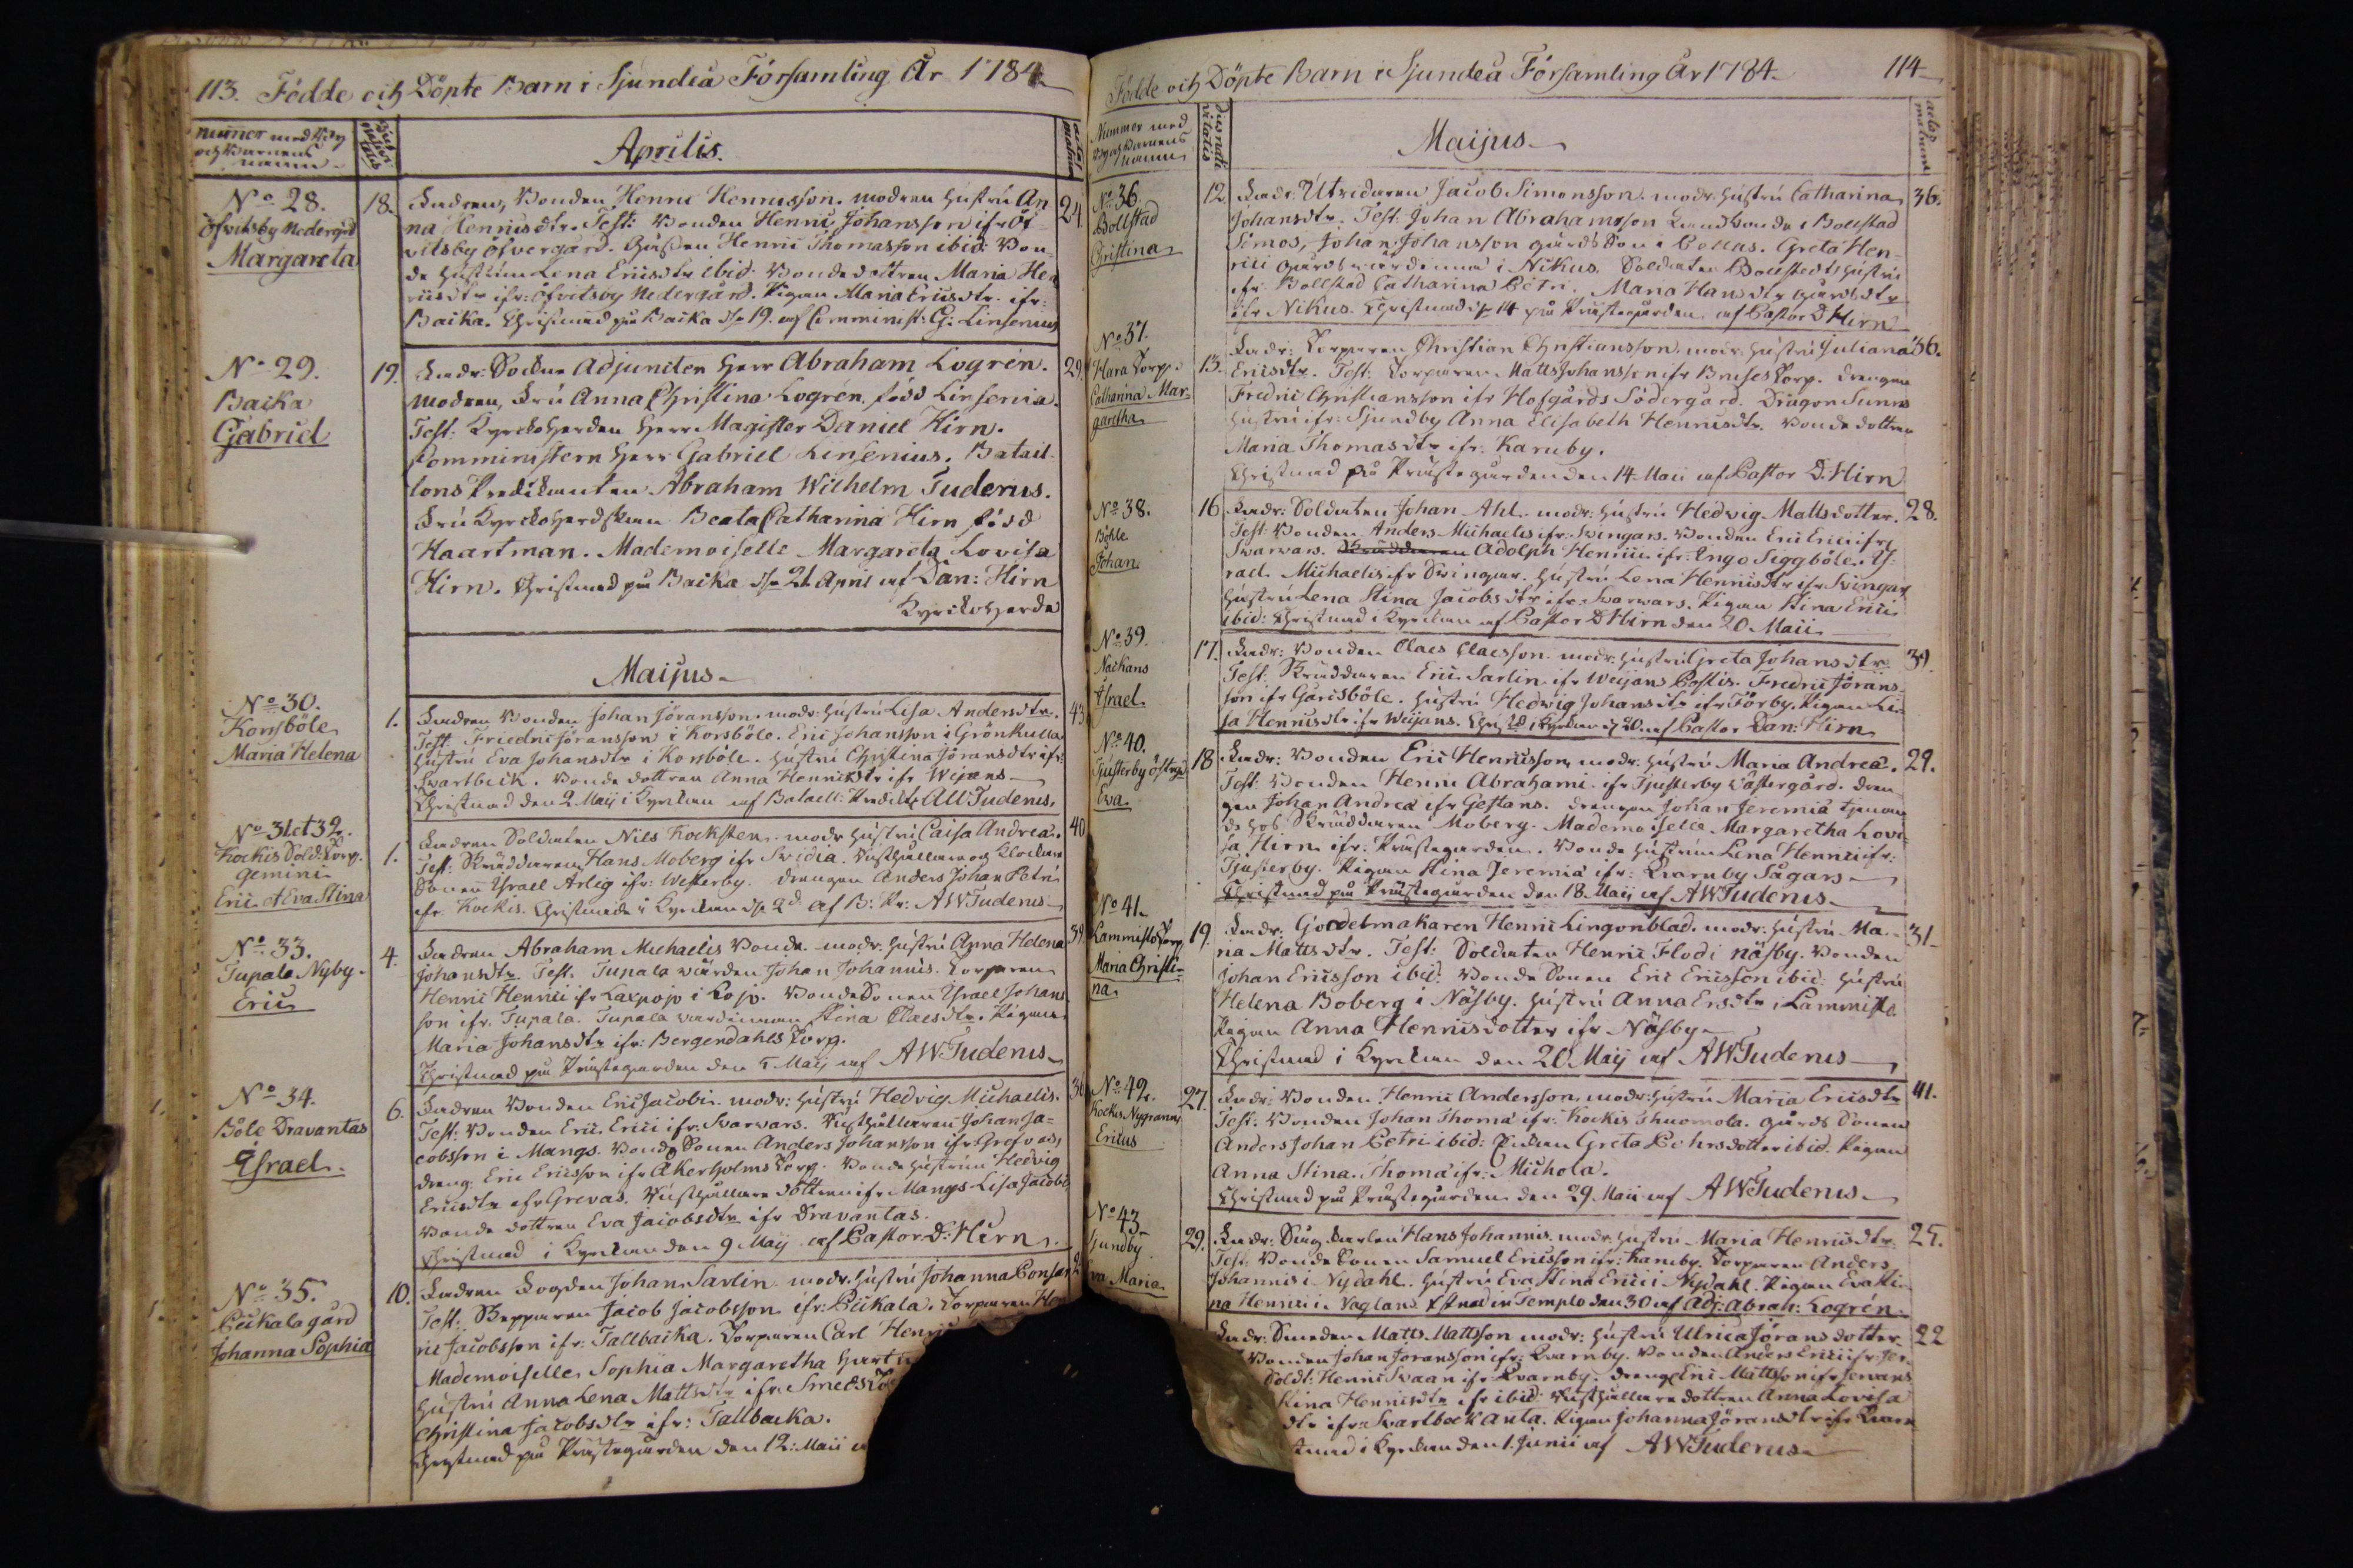 113. Födde och Döpte Barn i Sjundeå Församling År 1784
nummer med By
och Barnens
namn
Aprilis.
No 28.
Öfvitsby Nedergård
Margareta
18.
24
Fadren, Bonden Henric Henricsson. modren hustru An
na Henricsdtr. Test: Bonden Henric Johansson ifr. Öf-
vitsby Öfvergård. Henric Thomasson ibid: Bon-
de hustrun Lena Ericsdtr ibid. Bondedottren Maria Hen
ricsdtr ifr: Öfvitsby Nedergård. Pigan Maria Ericsdtr. ifr:
Backa. Christnad på Backa d. 19. af Comminist: G: Linsenius
No 29.
Backa
Gabriel
19.
29.
Fadr: Sockne Adjuncten Herr Abraham Logrén.
modren, Fru Anna Christina Logrén, född Linsenia.
Test: Kyrkoherden Herr Magister Daniel Hirn.
Comministern Herr Gabriel Linsenius. Batail-
lons Predikanten Abraham Wilhelm Tuderus.
Fru Kyrkoherdskan Beata Catharina Hirn född
Haartman. Mademoiselle Margareta Lovisa
Hirn. Christnad på Backa d. 21 April af Dan: Hirn
Kyrkoherde
Maijus
No 30.
Korsböle
Maria Helena
1.
43
Fadren Bonden Johan Jöransson. modr: hustru Lisa Andersdtr.
Test. Friedric Jöransson i Korsböle. Eric Johansson i Grönkulla
hustru Eva Johansdtr i Korsböle. hustru Christina Jöransdtr ifr:
Svartbeck. Bonde dottren Anna Henricsdtr ifr Weijans
Christnad den 2 Maij i Kyrkan af Bataill: Predik: AW Tuderus.
No 31 et 32.
Kockis Sold: Torp.
gemini
Eric et Eva Stina
1.
40
Fadren Soldaten Nils Kocksten. modr hustru Caisa Andreæ.
Test: Skräddaren Hans Moberg ifr Svidia. Rusthållare och Klockare
Sonen Israel Arlig ifr: Westerby. Drengen Anders Johan Petri
ifr. Kockis. Christnade i Kyrkan d. 2d af B: Pr: AWTuderus
No 33.
Tupala Nyby
Eric
4
39
Fadren Abraham Michaelis Bonde. modr: hustru Anna Helena
Johansdtr. Test: Tupala wärden Johan Johannis. Torparen
Henric Henrici ifr Laxpojo i Lojo. Bonde Sonen Israel Johans
son ifr. Tupala. Tupala wärdinnan Stina Claesdtr. Pigan
Maria Johansdtr ifr: Bergendahls Torp.
Christnad på Prästegården den 5 Maij af AWTuderus
No 34.
Böle Dravantas
Israel
6.
36
Fadren Bonden Eric Jacobi. modr: hustru Hedvig Michaelis.
Test: Bonden Eric Erici ifr. Svarvars. Rusthållaren Johan Ja-
cobsson i Mangs. Bonde Sonen Anders Johansson ifr Grefvas,
dreng: Eric Ericsson ifr Åkerholms Torp. Bonde hustrun Hedvig
Ericsdtr ifr Grevas. Rusthållare dottren ifr Mangs Lisa Jacobi,
Bonde dottren Eva Jacobsdtr ifr Dravantas.
Christnad i Kyrkan den 9 Maij af Pastor D: Hirn
No 35.
Pickala gård
Johanna Sophia
10.
Fadren Fogden Johan Sarlin modr. hustru Johanna
Test: Skepparen Jacob Jacobsson ifr: Pickala. Torparen Hen
ric Jacobsson ifr: Tallbacka. Torparen Carl Henric
Mademoiselle Sophia Margaretha
hustru Anna Lena Mattsdtr ifr. Smeds
Christina Jacobsdtr ifr: Tallbacka.
Christnad på Prästegården den 12: Maii
Födde och Döpte Barn i Sjundeå Församling År 1784
114
Nummer med
By och Barnens
namn
Maijus
No 36.
Bollstad
Christina
12.
36.
Fadr: Utridaren Jacob Simonsson. modr. hustru Catharina
Johansdtr. Test: Johan Abrahamsson Landbonde i Bollstad
Simos, Johan Johansson gårds Son i Collas. Greta Hen-
rici gårds wärdinna i Nikus. Soldaten Bollstedts hustru
ifr Bollstad Catharina Petri. Maria Hansdtr gårdsdtr
ifr Nikus. Christnad d. 14 på Prästegården af Pastor D Hirn
No 37.
Hara Torp
Catharina Mar-
garetha
13.
36.
Fadr: Torparen Christian Christiansson. modr: hustru Juliana
Ericsdtr. Test: Torparen Matts Johansson ifr Bruses Torp. Drengen
Fredric Christiansson ifr Hofgårds Södergård. Dragon Sunns
hustru ifr: Sjundby Anna Elisabeth Henricsdtr. Bonde dottren
Maria Thomasdtr ifr: Karuby.
Christnad på Prästegården den 14 Maii af Pastor D: Hirn
No 38.
Böhle
Johan
16
28.
Fadr: Soldaten Johan Ahl. modr: hustru Hedvig Mattsdotter.
Test: Bonden Anders Michaelis ifr: Svingars. Bonden Eric Erici ifr
Svarvars. Skräddaren Adolph Henrici ifr: Ingo Siggböle. Is-
rael Michaelis ifr Svingar. hustru Lena Henricsdtr ifr Svingar
hustru Lena Stina Jacobsdtr ifr: Svarvars. Pigan Stina Erici
ibid: Christnad i Kyrkan af Pastor D Hirn den 20 Maii
No 39.
Nackans
Israel
17.
39.
Fadr: Bonden Claes Claesson. modr: hustru Greta Johansdtr.
Test: Skräddaren Eric Sarlin ifr Weijans Fredric Jörans-
son ifr Gårdsböle. hustru Hedvig Johansdtr ifr Törby. Pigan Li-
sa Henricsdtr ifr Weijans. Christnad i Kyrkan d. 20. af Pastor Dan: Hirn
No 40.
Tjusterby östergd
Eva
18
29.
Fadr: Bonden Eric Henricsson modr: hustru Maria Andreæ.
Test: Bonden Henric Abrahami ifr Tjusterby Västergård. Dren
gen Johan Andreæ ifr Gestans. Drengen Johan Jeremiæ tjenan
de hos Skräddaren Moberg. Mademoiselle Margaretha Lovi-
sa Hirn ifr: Prästegården. Bonde hustrun Lena Henrici ifr:
Tjusterby. Pigan Stina Jeremiæ ifr: Kvarnby Sågars
Christnad på Prästegården den 18. Maij af AWTuderus
No 41.
Kammisto Torp
Maria Christi-
na
19.
31
Fadr: Gördelmakaren Henric Lingonblad. modr: hustru Ma-
ria Mattsdtr. Test: Soldaten Henric Flod i näsby. Bonden
Johan Ericsson ibid: Bonde Sonen Eric Ericsson ibid. hustru
Helena Boberg i Näsby. hustru Anna Ersdtr i Lammisto.
Pigan Anna Henricsdotter ifr Näsby
Christnad i Kyrkan den 20 Maij af AWTuderus
No 42.
Kockis Nygranns
Ericus
27.
41.
Fadr: Bonden Henric Andersson, modr: hustru Maria Ericsdtr
Test: Bonden Johan Thomæ ifr: Kockis Thuomola. gårds Sonen
Anders Johan Petri ibid: Enkan Greta Pehrsdotter ibid. Pigan
Anna Stina Thomæ ifr: Michola.
Christnad på Prästegården den 29. Maii af AWTuderus
No 43
Sjundby
Eva Maria
29.
25.
Fadr: Hans Johannis. modr: hustru Maria Henricsdtr.
Test: Bonde Sonen Samuel Ericsson ifr: Karuby. Torparen Anders
Johannis i Nydahl. hustru Eva Stina Erici i Nydahl. Pigan Eva Sti
na Henrici i Vagland. Xstnad in Templo den 30 af Adj: Abrah: Logrén.
22
Fadr: Smeden Matts Mattsson modr: hustru Ulrica Jörans dotter
Bonden Johan Jöransson ifr: Kvarnby. Bonden Anders Erici ifr: Jer-
Soldt: Henric Svaan ifr Kvarnby. dreng Eric Mattsson ifr Servans
Stina Henricsdtr ifr ibid. Rusthållare dottren Anna Lovisa
dtr ifr: Svartbeck Anta. Pigan Johanna Jöransdtr ifr Kvarn
stnad i Kyrkan den 1. Junii af AWTuderus